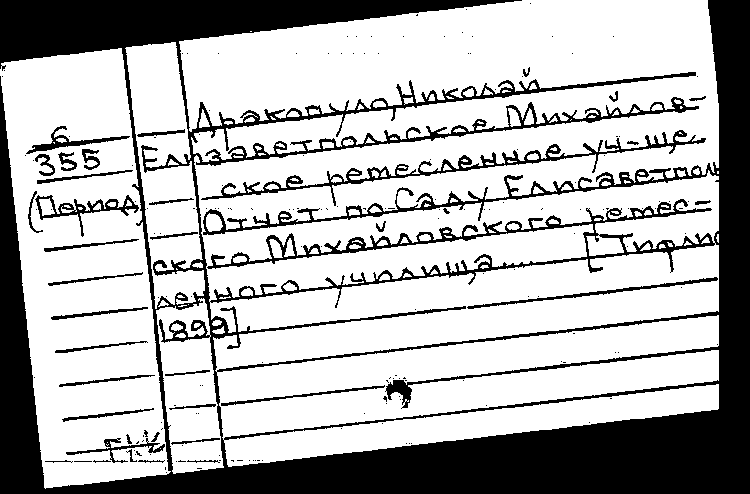 Дракопуло, Николай
6
355 Елизаветпольское Михайлов-
ское ремесленное уч-ще.
(Период) Отчет по Саду Елисаветполь
ского Михайловского ремес-
ленного училища..... [Тифлис
1899].
ГКК